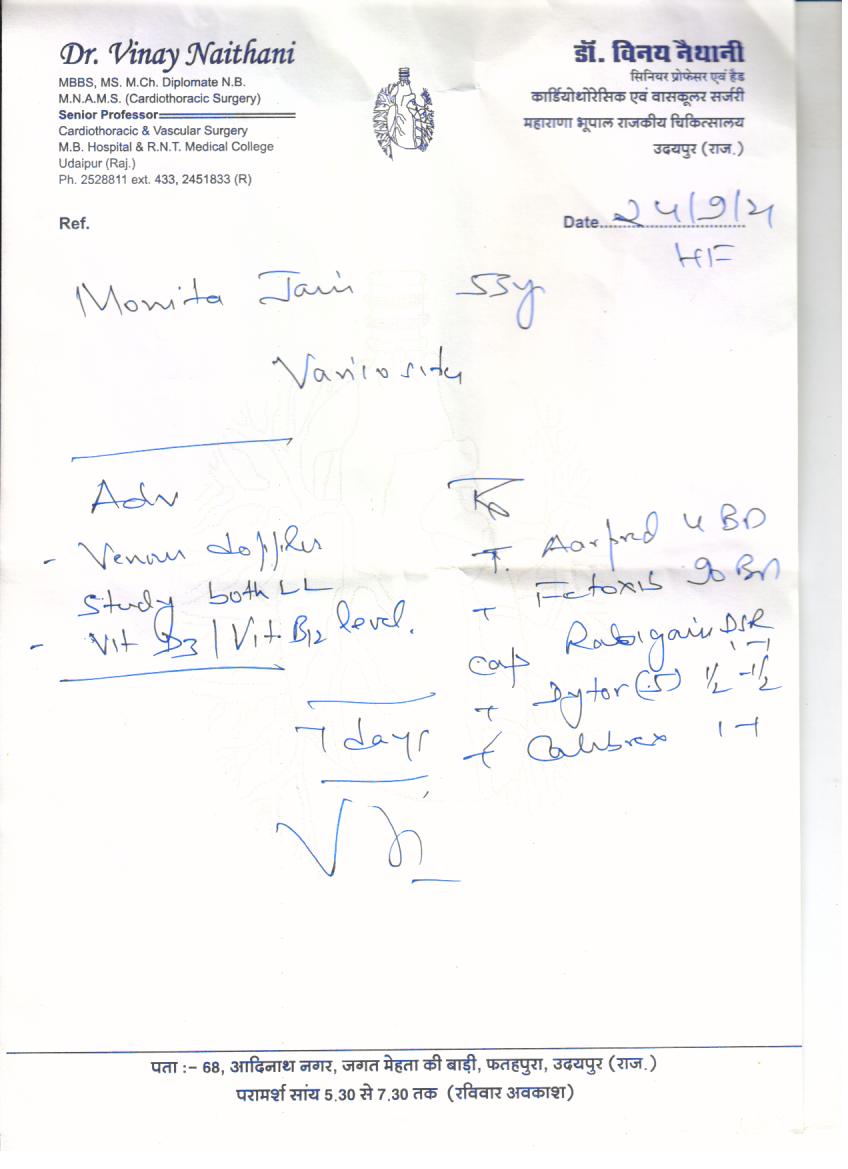 Dr. Vinay Naithani
MBBS, MS. M.Ch. Diplomate N.B.
M.N.A.M.S. (Cardiothoracic Surgery)
Senior Professor
Cardiothoracic & Vascular Surgery
M.B. Hospital & R.N.T. Medical College
Udaipur (Raj.)
Ph. 2528811 ext. 433, 2451833 (R)
डॉ. विनय नैथानी
सिनियर प्रोफेसर एवं हैड
कार्डियोथोरेसिक एवं वासकूलर सर्जरी
महाराणा भूपाल राजकीय चिकित्सालय
उदयपुर (राज.)
Ref.
Date
Monita Jain 55y
Varicosity
Adv
- Venous doppler
Study both LL
- Vit D3 / Vit B12 level.
7 days
T. BD
T
Cap DSR
T Dytor (5) 1/2 - 1/2
T
पता :– 68, आदिनाथ नगर, जगत मेहता की बाड़ी, फतहपुरा, उदयपुर (राज.)
परामर्श सांय 5.30 से 7.30 तक (रविवार अवकाश)